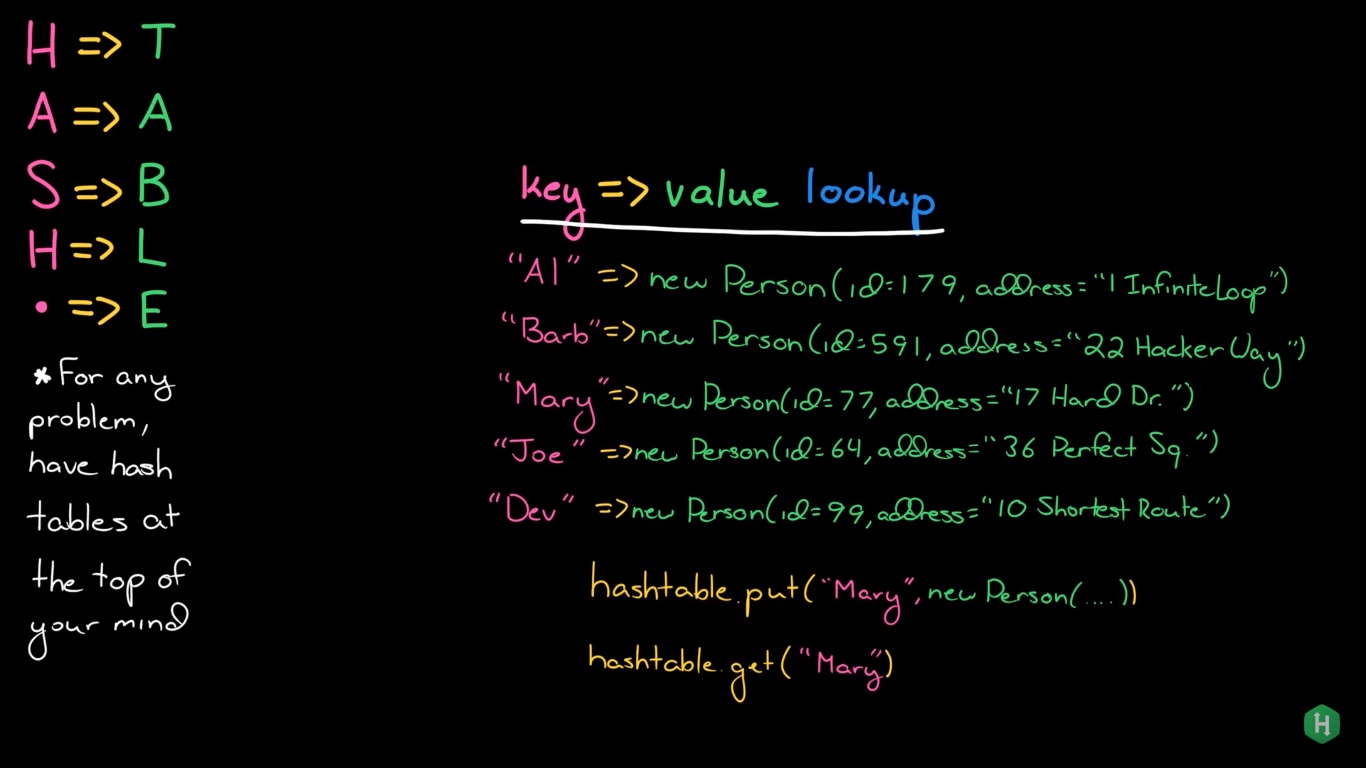 H => T
A => A
S => B
H => L
• => E
* For any
problem,
have hash
tables at
the top of
your mind
key => value lookup
"Al" => new Person(id=179, address="1 InfiniteLoop")
"Barb" => new Person(id=591, address="22 Hacker Way")
"Mary" => new Person(id=77, address="17 Hard Dr.")
"Joe" => new Person(id=64, address="36 Perfect Sq.")
"Dev" => new Person(id=99, address="10 Shortest Route")
hashtable.put("Mary", new Person(....))
hashtable.get("Mary")
H